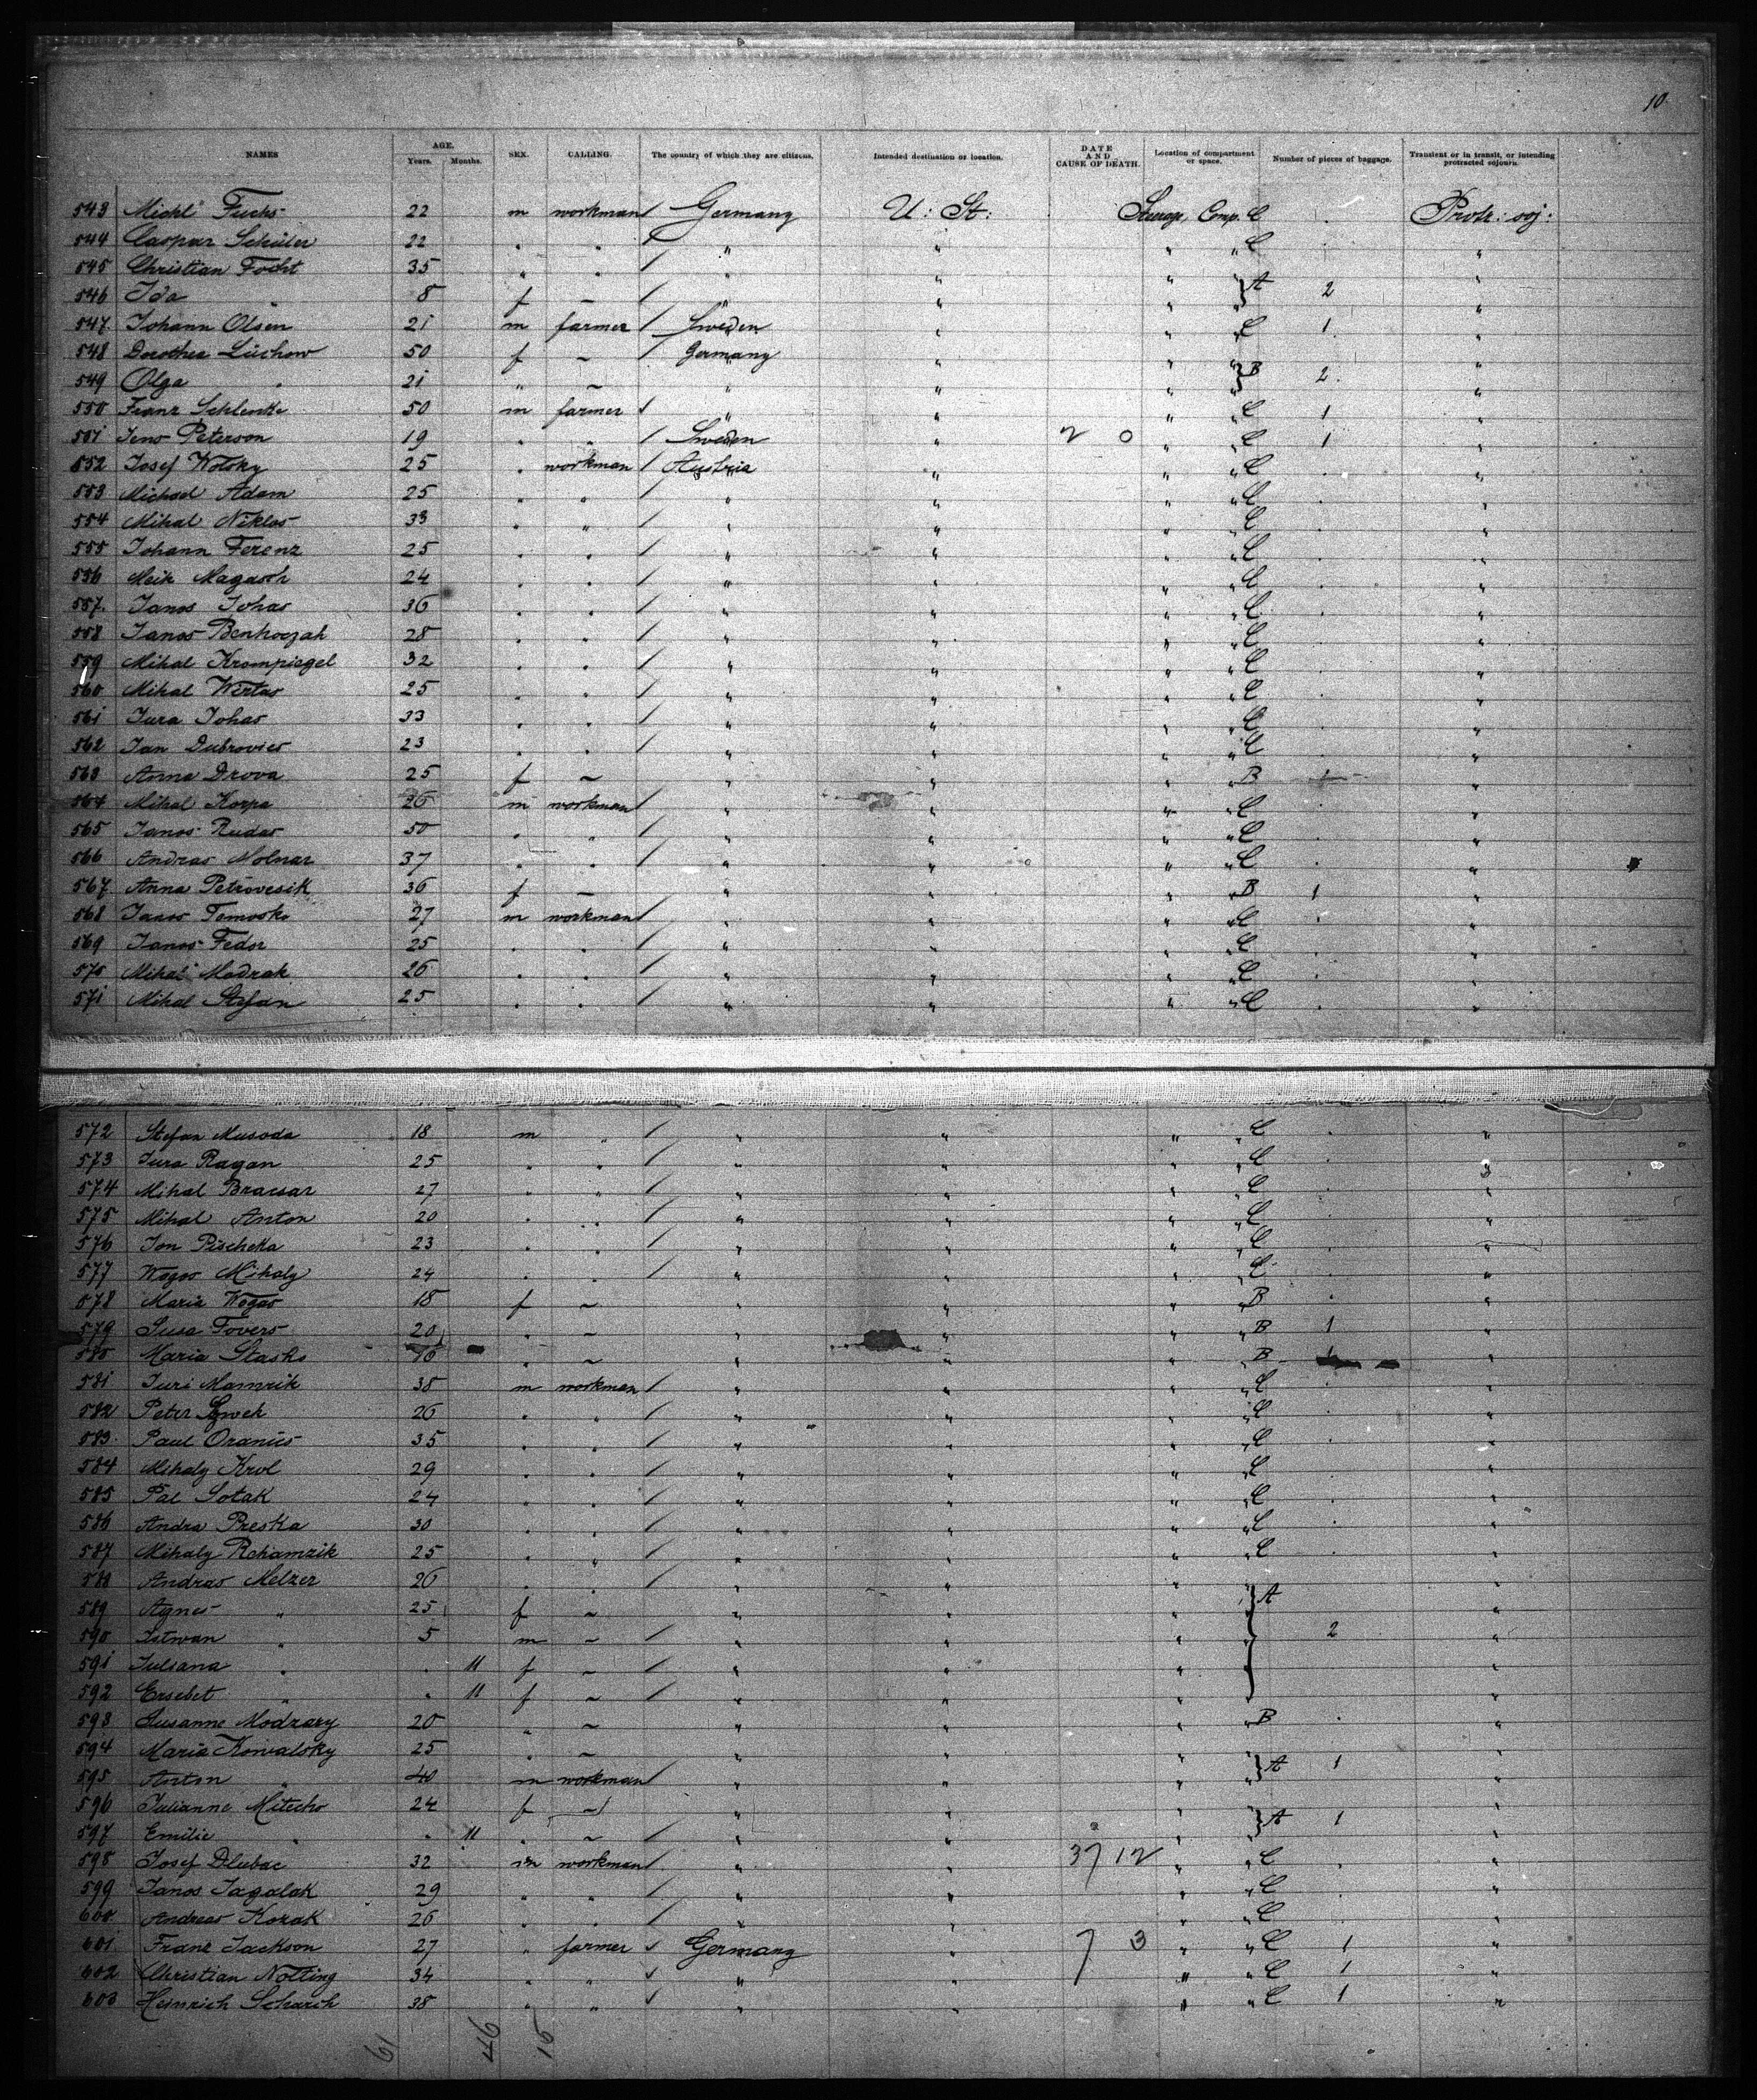 10.
NAMES AGE. Years. Months. SEX. CALLING. The country of which they are citizens. Intended destination or location. DATE AND CAUSE OF DEATH. Location of compartment or space. Number of pieces of baggage. Transient or in transit, or intending protracted sojourn.
543 Michl Fuchs 22 m workman / Germany U: St: Steerage Comp. C Protr: soj:
544 Caspar Schüler 22 " " / " " " " C "
545 Christian Focht 35 " " / " " " " "
546 Ida " 8 f — / " " " " } A 2 "
547 Johann Olsen 21 m farmer / Sweden " " " C 1 "
548 Dorothea Lüchow 50 f — / Germany " " " "
549 Olga " 21 " — " " " " } B 2. "
550 Franz Schlenke 50 m farmer / " " " " C 1 "
551 Jens Peterson 19 " " / Sweden " 2 0 " " C 1 "
552 Josef Wolsky 25 " workman / Austria " " " C "
553 Michael Adam 25 " " / " " " " C "
554 Mihal Niklos 33 " " / " " " " C "
555 Johann Ferenz 25 " " / " " " " C "
556 Meik Magasch 24 " " / " " " " C "
557. Janos Johas 36 " " / " " " " C "
558 Janos Benhoczah 28 " " / " " " " C "
559 Mihal Krompiegel 32 " " / " " " " C "
560 Mihal Wertas 25 " " / " " " " C "
561 Jura Johas 33 " " / " " " " C "
562 Jan Dubrovics 23 " " / " " " " C "
563 Anna Drova 25 f — " " " " B 1 "
564 Mihal Korpa 26 m workman / " " " " C "
565 Janos Rudas 50 " " / " " " " C "
566 Andras Molnar 37 " " / " " " " C "
567 Anna Petrovesik 36 f — " " " " B 1 "
568 Janos Tomosko 27 m workman / " " " " C "
569 Janos Fedor 25 " " / " " " " C "
570 Mihal Modrak 26 " " / " " " " C "
571 Mihal Stefan 25 " " / " " " " C "
572 Stefan Musoda 18 m " / " " " " C "
573 Jura Ragan 25 " " / " " " " C "
574 Mihal Bracsar 27 " " / " " " " C "
575 Mihal Anton 20 " " / " " " " C "
576 Jon Pischeka 23 " " / " " " " C "
577 Wagas Mihaly 24 " " / " " " " C "
578 Maria Wagas 18 f — " " " " B "
579 Susa Fovers 20 " — " " " " B 1 "
580 Maria Stasko " — " " " " B 1 "
581 Juri Mamrik 38 m workman / " " " " C "
582 Peter 26 " " / " " " " C "
583. Paul Oranics 35 " " / " " " " C "
584 Mihaly Krol 29 " " / " " " " C "
585 Pal Sotak 24 " " / " " " " C "
586 Andra Preska 30 " " / " " " " C "
587 Mihaly Rchamzik 25 " " / " " " " C "
588 Andras Melzer 26 " " / " " " " A "
589 Agnes " 25 f — " " " " "
590 Istwan " 5 m — / " " " " } 2 "
591 Julsana " " 11 f — / " " " " "
592 Ersebet " " 11 f — / " " " " "
593 Susanne Modrary 20 " — " " " " B "
594 Maria Kowalsky 25 " — " " " " "
595 Anton " 40 m workman / " " " " } A 1 "
596 Julianne Mitecho 24 f — " " " " "
597 Emilie " " 11 " — / " " " " } A 1 "
598 Josef Dlubac 32 m workman / " " 37 12 " " C "
599 Janos Jagalak 29 " " / " " " " C "
600 Andreas Kozak 26 " " / " " " " C "
601 Franz Jackson 27 " farmer ✓ Germany " 7 3 " " C 1 "
602 Christian Nolting 34 " " ✓ " " " " C 1 "
603 Heinrich Scharih 38 " " ✓ " " " " C 1 "
61 46 15